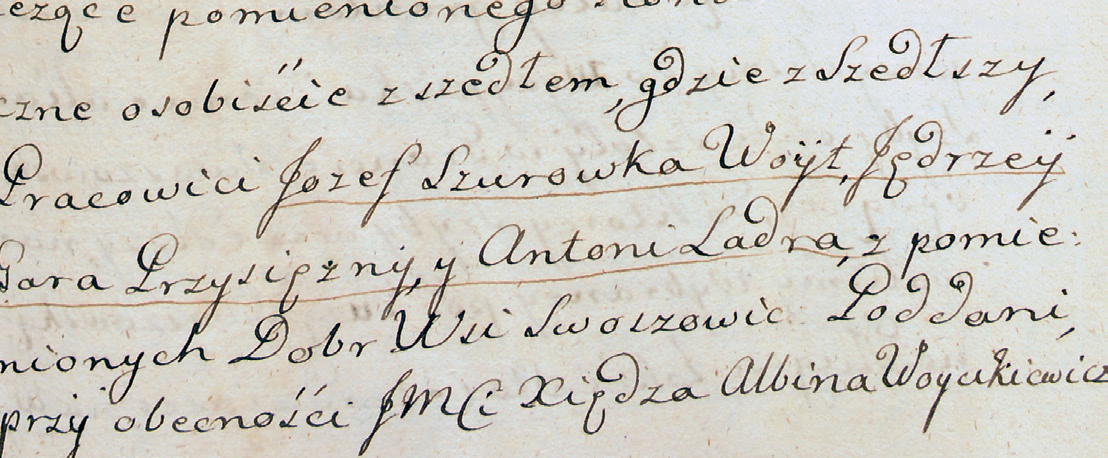 pomienionego
czne osobiście zszedłem, gdzie z Szedłszy,
Pracowici Jozef Szurowka Woyt, Jędrzey
Gara Przysiężny, y Antoni Ladra, z pomie:
nionych Dobr Wsi Swoszowic Poddani,
przy obecności JMCi Xiędza Albina Woycikiewicz